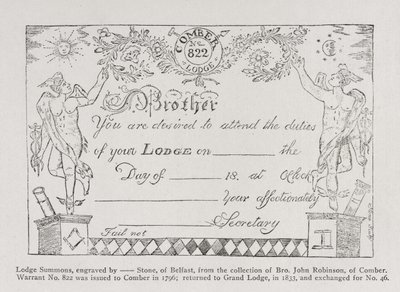 COMBER
No.
822
LODGE
Brother
You are desired to attend the duties
of your LODGE on the
Day of 18 . at OClock
Your affectionately
Secretary
Fail not
Lodge Summons, engraved by —— Stone, of Belfast, from the collection of Bro. John Robinson, of Comber.
Warrant No. 822 was issued to Comber in 1796; returned to Grand Lodge, in 1833, and exchanged for No. 46.